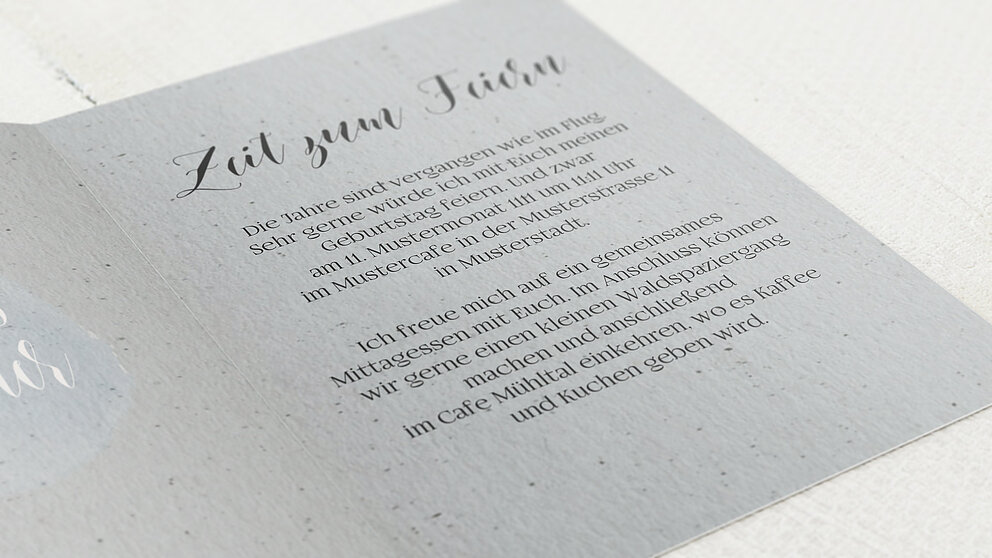 Zeit zum Feiern
Die Jahre sind vergangen wie im Flug
Sehr gerne würde ich mit Euch meinen
Geburtstag feiern. Und zwar
am 11. Mustermonat 1111 um 11.11 Uhr
im Mustercafe in der Musterstrasse 11
in Musterstadt.
Ich freue mich auf ein gemeinsames
Mittagessen mit Euch. Im Anschluss können
wir gerne einen kleinen Waldspaziergang
machen und anschließend
im Cafe Mühltal einkehren, wo es Kaffee
und Kuchen geben wird.